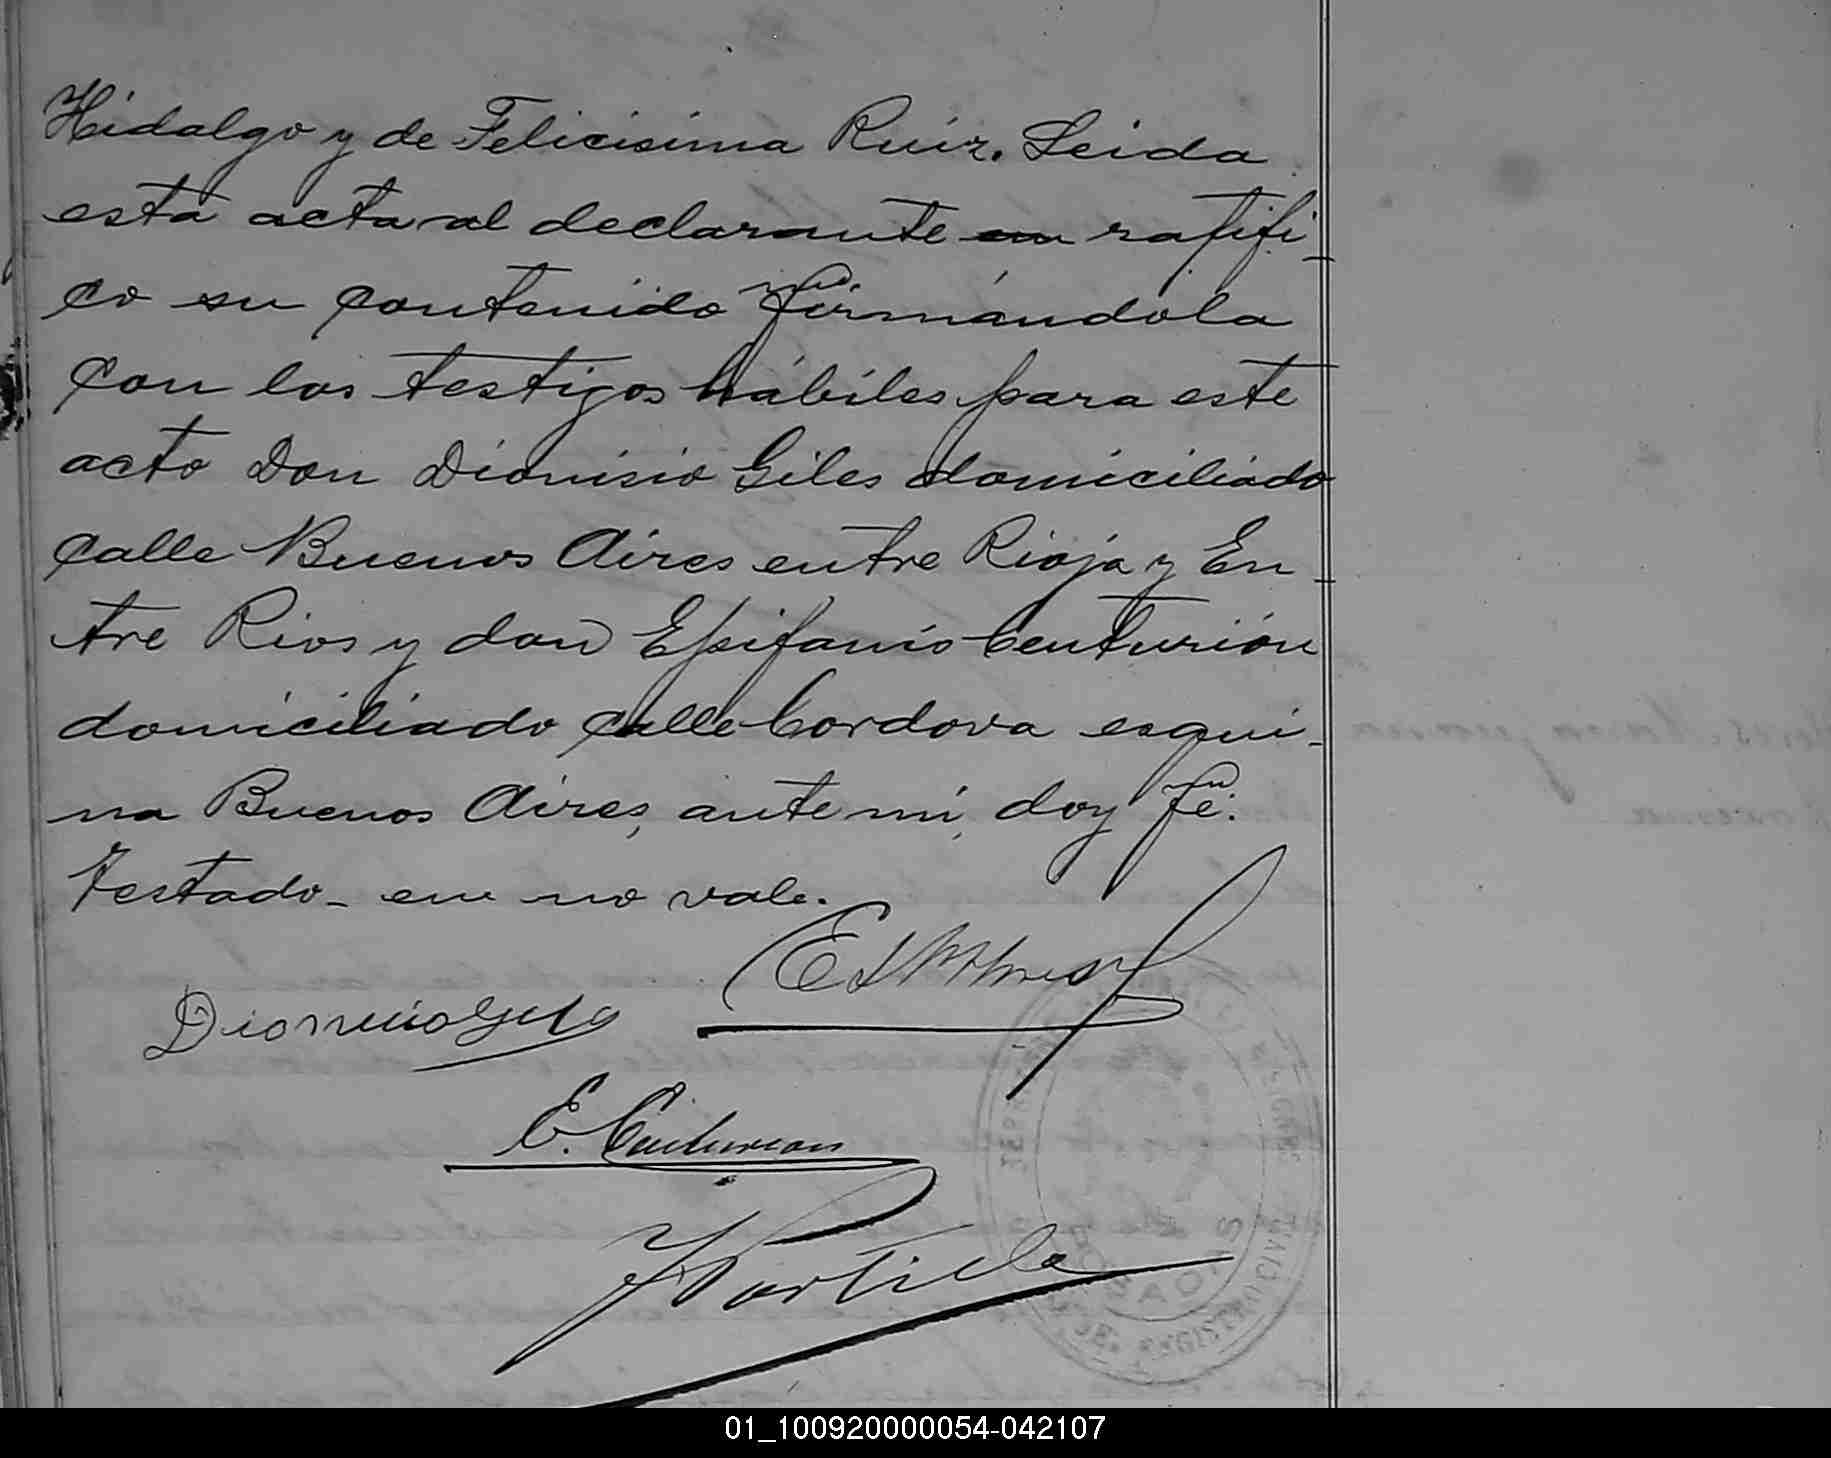 Hidalgo y de Felicisima Ruiz. Leida
esta acta al declarante en ratifi-
co su contenido firmándola
con los testigos hábiles para este
acto Don Dionisio Giles domiciliado
calle Buenos Aires entre Rioja y En-
tre Rios y don Epifanio Centurión
domiciliado calle Cordova esqui-
na Buenos Aires, ante mi, doy fé.
Testado - en no vale.
Dionisio Giles
E. Centurion
POSADAS
REGISTRO CIVIL
01_100920000054-042107